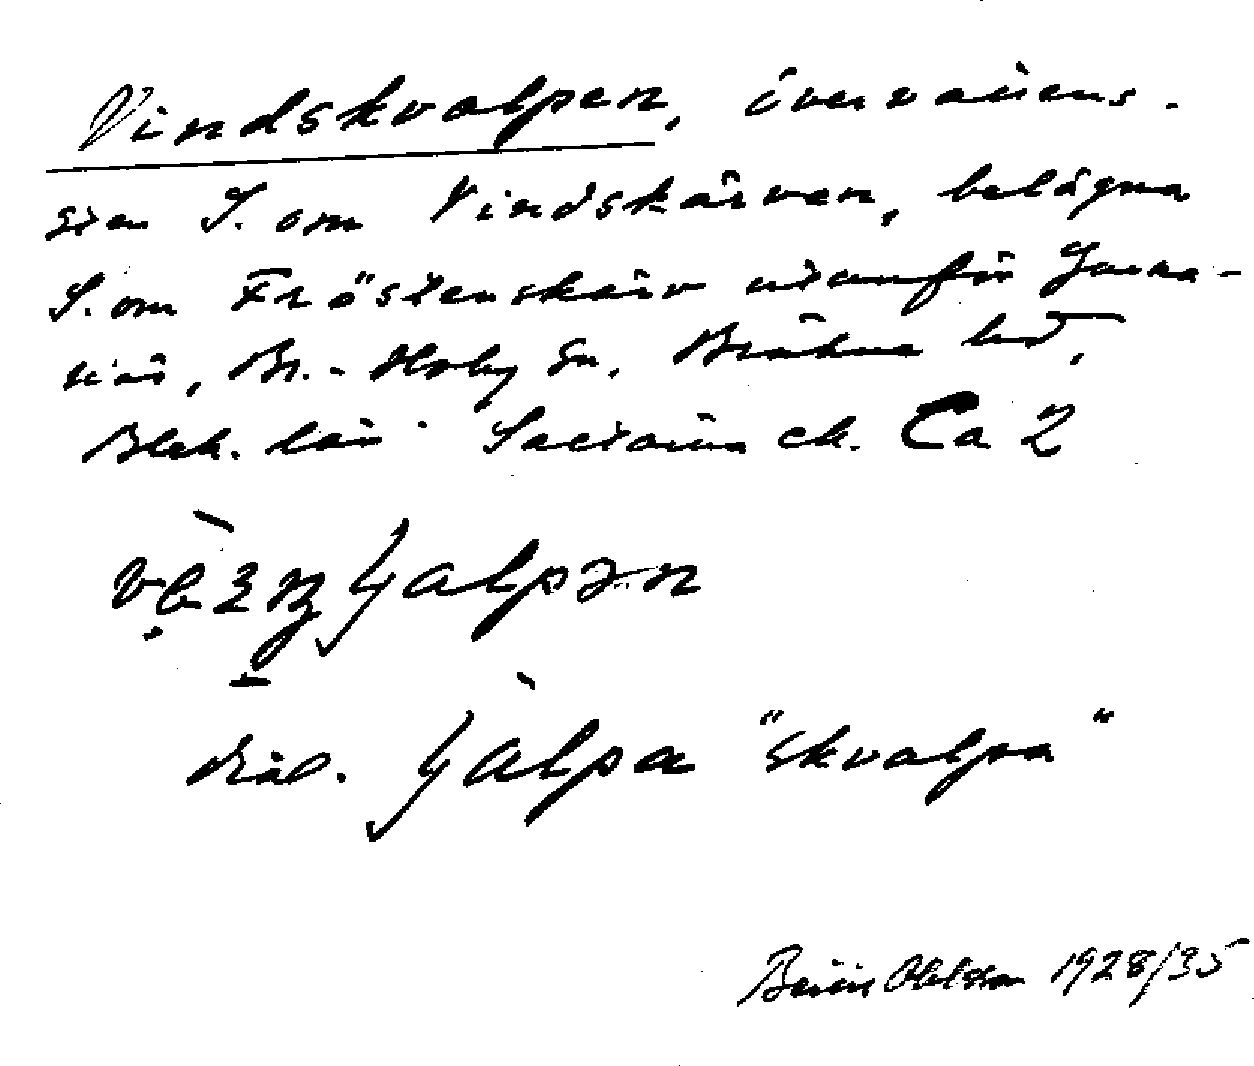 Vindskvalpen, övervattens-
sten S. om Vindskärven, belägna
S. om Fröstenskärv utanför Garna-
när, Br.-Hoby sn, Bräkne hd,
Blek. län. Saltärna ek. Ca 2
jalpən
dial. jàlpa "skvalpa"
Bertil Ohlsson 1928/35